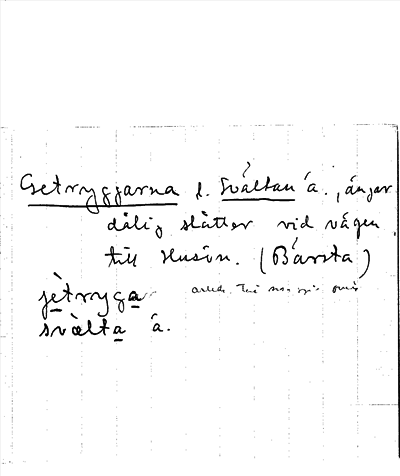 Getryggarna l. Svältan å., ängar
dålig slåtter vid vägen
till Husön. (Bärsta)
jètryga
svàlta å.